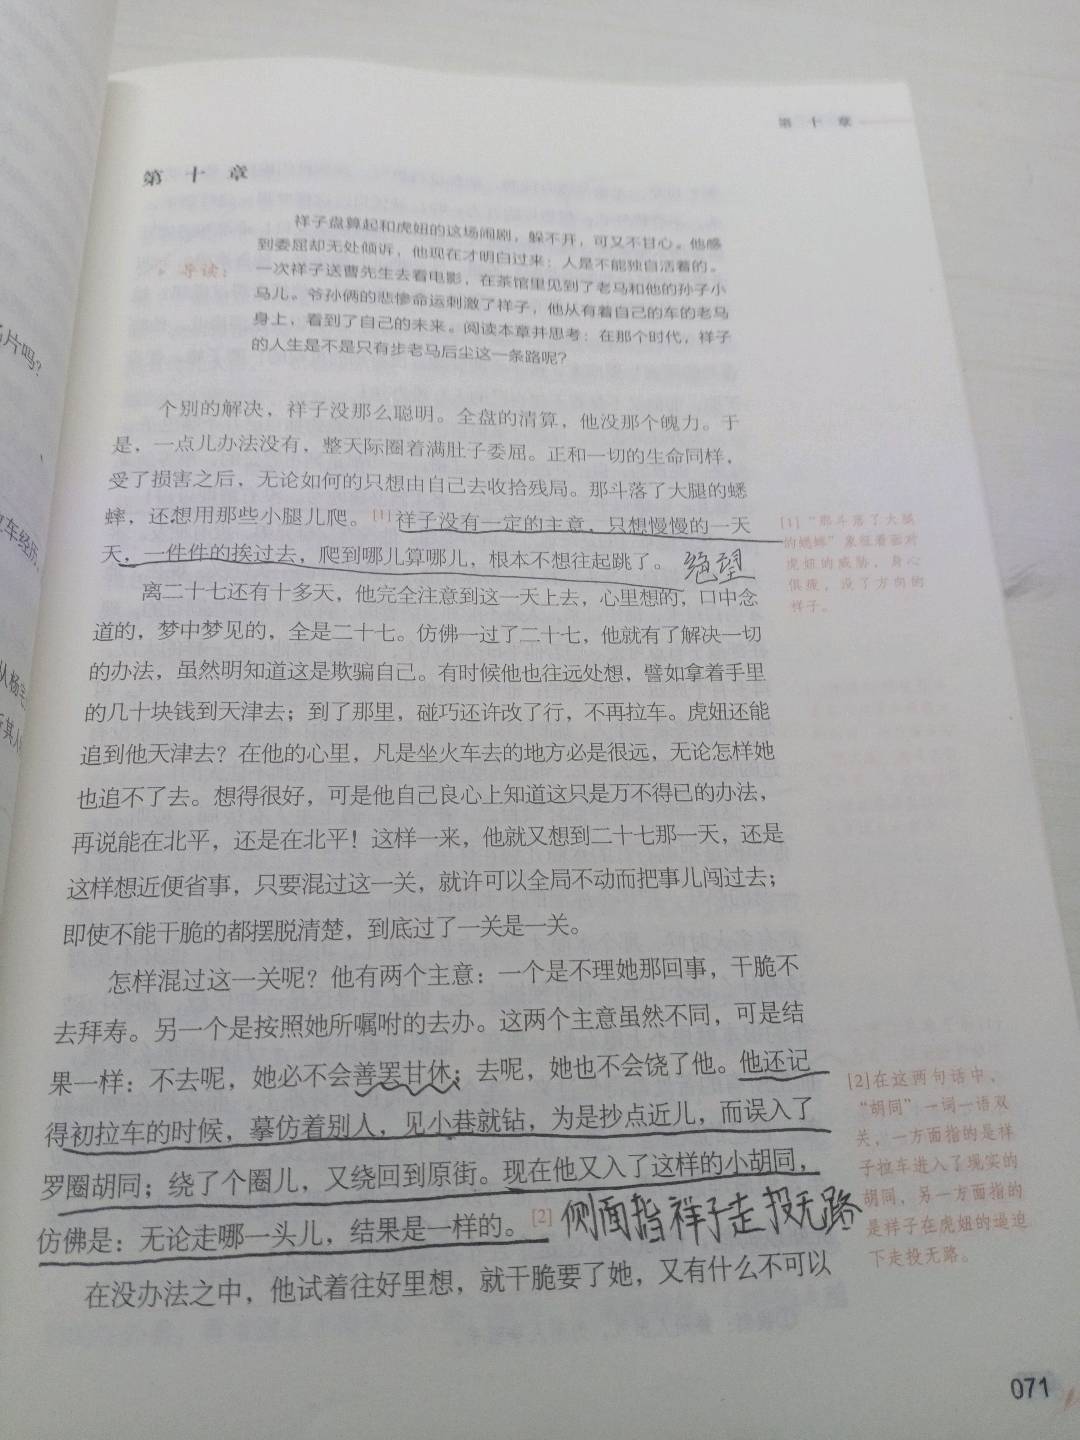 第十章
第十章
导读：
祥子盘算起和虎妞的这场闹剧，躲不开，可又不甘心。他感
到委屈却无处倾诉，他现在才明白过来：人是不能独自活着的。
一次祥子送曹先生去看电影，在茶馆里见到了老马和他的孙子小
马儿。爷孙俩的悲惨命运刺激了祥子，他从有着自己的车的老马
身上，看到了自己的未来。阅读本章并思考：在那个时代，祥子
的人生是不是只有步老马后尘这一条路呢？
个别的解决，祥子没那么聪明。全盘的清算，他没那个魄力。于
是，一点儿办法没有，整天际圈着满肚子委屈。正和一切的生命同样，
受了损害之后，无论如何的只想由自己去收拾残局。那斗落了大腿的蟋
蟀，还想用那些小腿儿爬。[1]祥子没有一定的主意，只想慢慢的一天
天，一件件的挨过去，爬到哪儿算哪儿，根本不想往起跳了。 绝望
离二十七还有十多天，他完全注意到这一天上去，心里想的，口中念
道的，梦中梦见的，全是二十七。仿佛一过了二十七，他就有了解决一切
的办法，虽然明知道这是欺骗自己。有时候他也往远处想，譬如拿着手里
的几十块钱到天津去；到了那里，碰巧还许改了行，不再拉车。虎妞还能
追到他天津去？在他的心里，凡是坐火车去的地方必是很远，无论怎样她
也追不了去。想得很好，可是他自己良心上知道这只是万不得已的办法，
再说能在北平，还是在北平！这样一来，他就又想到二十七那一天，还是
这样想近便省事，只要混过这一关，就许可以全局不动而把事儿闯过去；
即使不能干脆的都摆脱清楚，到底过了一关是一关。
怎样混过这一关呢？他有两个主意：一个是不理她那回事，干脆不
去拜寿。另一个是按照她所嘱咐的去办。这两个主意虽然不同，可是结
果一样：不去呢，她必不会善罢甘休；去呢，她也不会饶了他。他还记
得初拉车的时候，摹仿着别人，见小巷就钻，为是抄点近儿，而误入了
罗圈胡同；绕了个圈儿，又绕回到原街。现在他又入了这样的小胡同，
仿佛是：无论走哪一头儿，结果是一样的。[2] 侧面指祥子走投无路
在没办法之中，他试着往好里想，就干脆要了她，又有什么不可以
[1]“那斗落了大腿
的蟋蟀”象征着面对
虎妞的威胁，身心
俱疲，没了方向的
祥子。
[2]在这两句话中，
“胡同”一词一语双
关，一方面指的是祥
子拉车进入了现实的
胡同，另一方面指的
是祥子在虎妞的逼迫
下走投无路。
071
片吗？
车经历
从杨宅